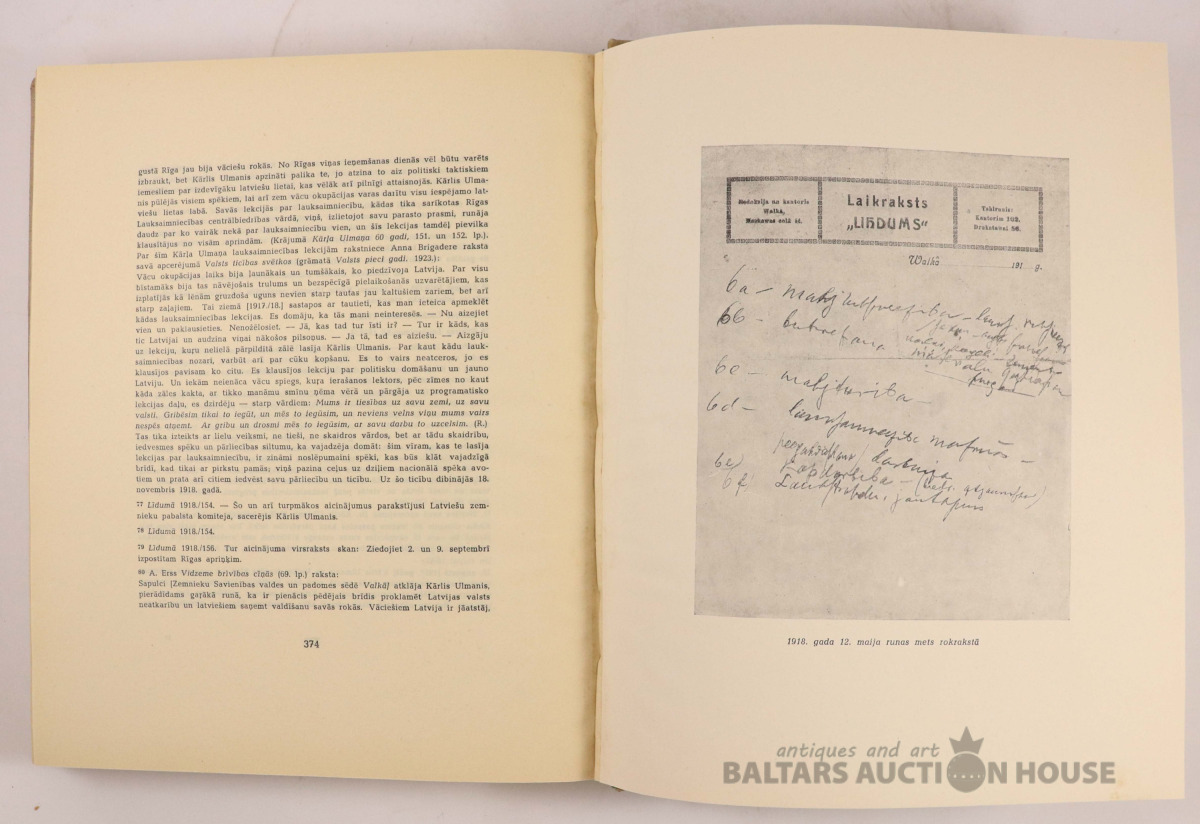 gustā Rīga jau bija vāciešu rokās. No Rīgas viņas ieņemšanas dienās vēl būtu varēts
izbraukt, bet Kārlis Ulmanis apzināti palika te, jo atzina to aiz politiski taktiskiem
iemesliem par izdevīgāku latviešu lietai, kas vēlāk arī pilnīgi attaisnojās. Kārlis Ulma-
nis pūlējās visiem spēkiem, lai arī zem vācu okupācijas varas darītu visu iespējamo lat-
viešu lietas labā. Savās lekcijās par lauksaimniecību, kādas tika sarīkotas Rīgas
Lauksaimniecības centrālbiedrības vārdā, viņā, izlietojot savu parasto prasmi, runāja
daudz par ko vairāk nekā par lauksaimniecību vien, un šīs lekcijas tamdēļ pievilka
klausītājus no visām aprindām. (Krājumā Kārļa Ulmaņa 60 gadi, 151. un 152. lp.).
Par šīm Kārļa Ulmaņa lauksaimniecības lekcijām rakstniece Anna Brigadere raksta
savā apcerējumā Valsts ticības svētkos (grāmatā Valsts pieci gadi. 1923.):
Vācu okupācijas laiks bija ļaunākais un tumšākais, ko piedzīvoja Latvija. Par visu
bīstamāks bija tas nāvējošais trulums un bezspēcīgā pielaikošanās uzvarētājiem, kas
izplatījās kā lēnām gruzdoša uguns nevien starp tautas jau kaltušiem zariem, bet arī
starp zaļajiem. Tai ziemā [1917./18.] sastapos ar tautieti, kas man ieteica apmeklēt
kādas lauksaimniecības lekcijas. Es domāju, ka tās mani neinteresēs. — Nu aizejiet
vien un paklausieties. Nenožēlosiet. — Jā, kas tad tur īsti ir? — Tur ir kāds, kas
tic Latvijai un audzina viņai nākošos pilsoņus. — Ja tā, tad es aiziešu. — Aizgāju
uz lekciju, kuŗu nelielā pārpildītā zālē lasīja Kārlis Ulmanis. Par kaut kādu lauk-
saimniecības nozari, varbūt arī par cūku kopšanu. Es to vairs neatceros, jo es
klausījos pavisam ko citu. Es klausījos lekciju par politisku domāšanu un jauno
Latviju. Un iekām neienāca vācu spiegs, kuŗa ierašanos lektors, pēc zīmes no kaut
kāda zāles kakta, ar tikko manāmu smīnu ņēma vērā un pārgāja uz programatisko
lekcijas daļu, es dzirdēju — starp vārdiem: Mums ir tiesības uz savu zemi, uz savu
valsti. Gribēsim tikai to iegūt, un mēs to iegūsim, un neviens velns viņu mums vairs
nespēs atņemt. Ar gribu un drosmi mēs to iegūsim, ar savu darbu to uzcelsim. (R.)
Tas tika izteikts ar lielu veiksmi, ne tieši, ne skaidros vārdos, bet ar tādu skaidrību,
iedvesmes spēku un pārliecības siltumu, ka vajadzēja domāt: šim vīram, kas te lasīja
lekcijas par lauksaimniecību, ir zināmi noslēpumaini spēki, kas būs klāt vajadzīgā
brīdī, kad tikai ar pirkstu pamās; viņš pazina ceļus uz dziļiem nacionālā spēka avo-
tiem un prata arī citiem iedvēst savu pārliecību un ticību. Uz šo ticību dibinājās 18.
novembris 1918. gadā.
77 Līdumā 1918./154. — Šo un arī turpmākos aicinājumus parakstījusi Latviešu zem-
nieku pabalsta komiteja, sacerējis Kārlis Ulmanis.
78 Līdumā 1918./154.
79 Līdumā 1918./156. Tur aicinājuma virsraksts skan: Ziedojiet 2. un 9. septembrī
izpostītam Rīgas apriņķim.
80 A. Erss Vidzeme brīvības cīņās (69. lp.) raksta:
Sapulci [Zemnieku Savienības valdes un padomes sēdē Valkā] atklāja Kārlis Ulmanis,
pierādīdams gaŗākā runā, ka ir pienācis pēdējais brīdis proklamēt Latvijas valsts
neatkarību un latviešiem saņemt valdīšanu savās rokās. Vāciešiem Latvija ir jāatstāj,
374
Redakzija un kantoris
Walkā,
Maskawas eelā 14.
Laikraksts
„LIHDUMS"
Telfonis:
Kantorim 102.
Drukatawai 56.
Walkā 191 g.
6a —
6b —
6c —
6d —
6e)
6f
1918. gada 12. maija runas mets rokrakstā
antiques and art
BALTARS AUCTION HOUSE